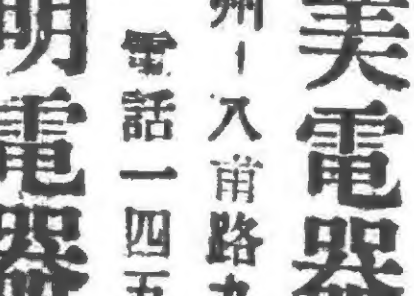 美電器
州一八甫路九
電話一四五
明電器